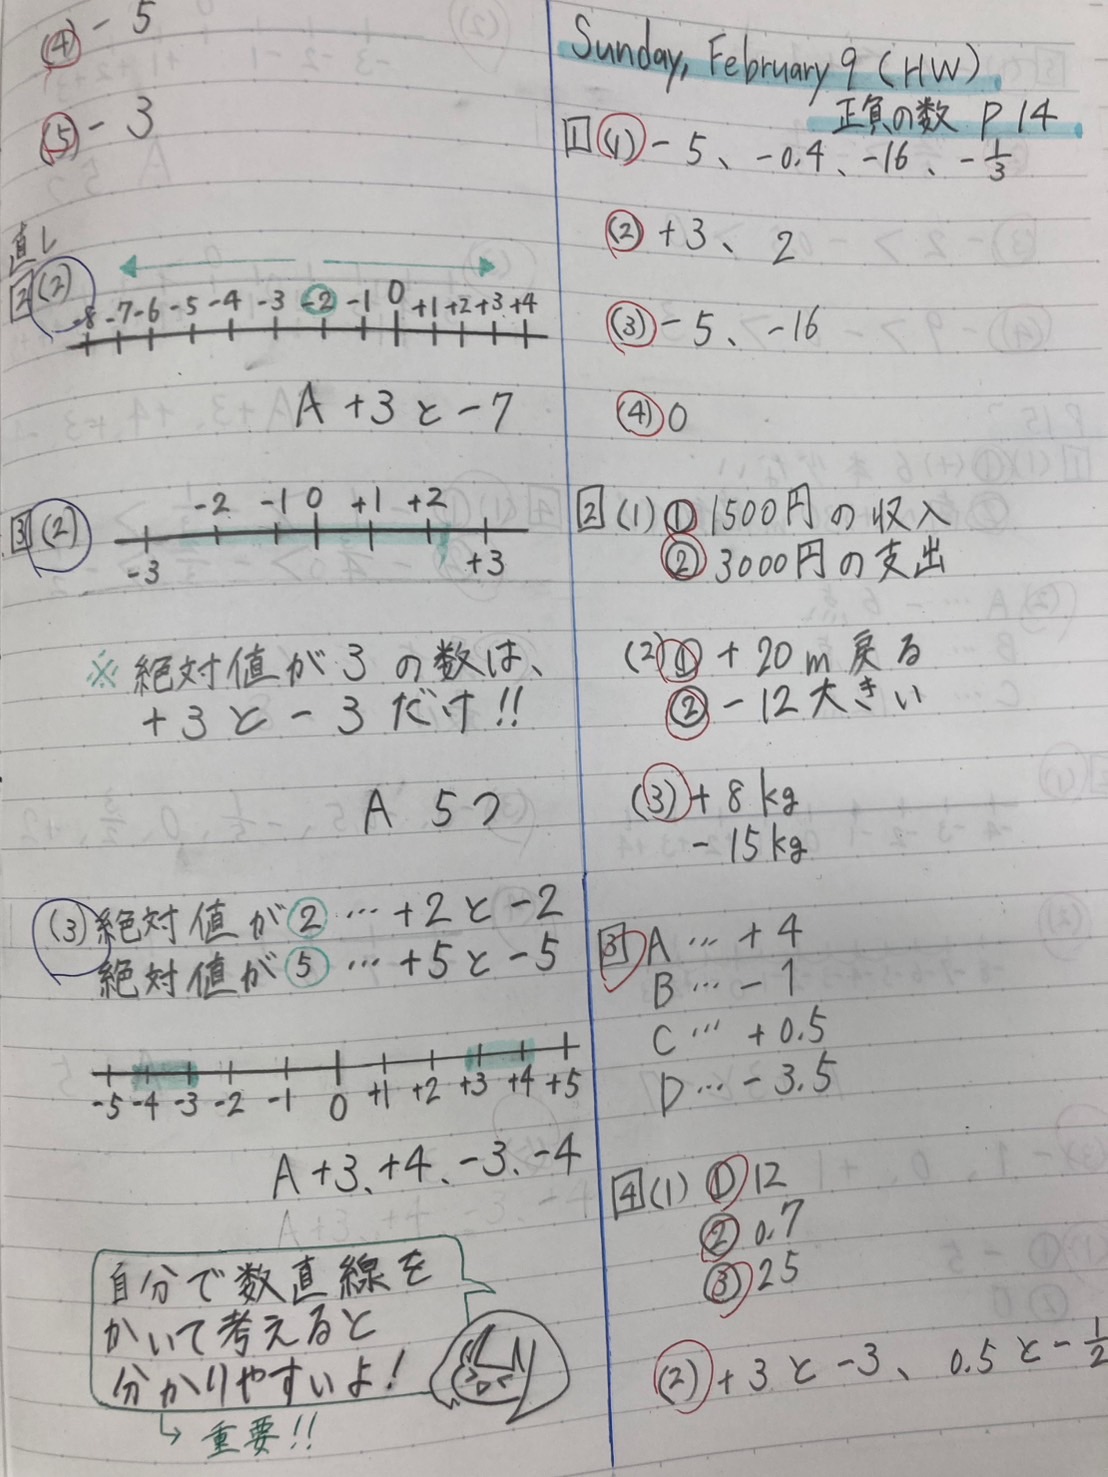 (4) - 5
(5) - 3
直し
2 (2)
-8 -7 -6 -5 -4 -3 -2 -1 0 +1 +2 +3 +4
A +3 と -7
3 (2)
-2 -1 0 +1 +2
-3 +3
※ 絶対値が 3 の数は、
+3 と - 3 だけ!!
A 5つ
(3) 絶対値が ② … +2 と -2
絶対値が ⑤ … +5 と -5
-5 -4 -3 -2 -1 0 +1 +2 +3 +4 +5
A +3、+4、-3、-4
自分で数直線を
かいて考えると
分かりやすいよ!
↳ 重要!!
Sunday, February 9 (HW)
正負の数 P 14
1 (1) - 5、-0.4、-16、-1/3
(2) +3、 2
(3) - 5、-16
(4) 0
2 (1) ① 1500円の収入
② 3000円の支出
(2) ① + 20 m 戻る
② - 12 大きい
(3) + 8 kg
- 15 kg
3 A … + 4
B … - 1
C … + 0.5
D … - 3.5
4 (1) ① 12
② 0.7
③ 25
(2) +3 と -3、 0.5 と -1/2